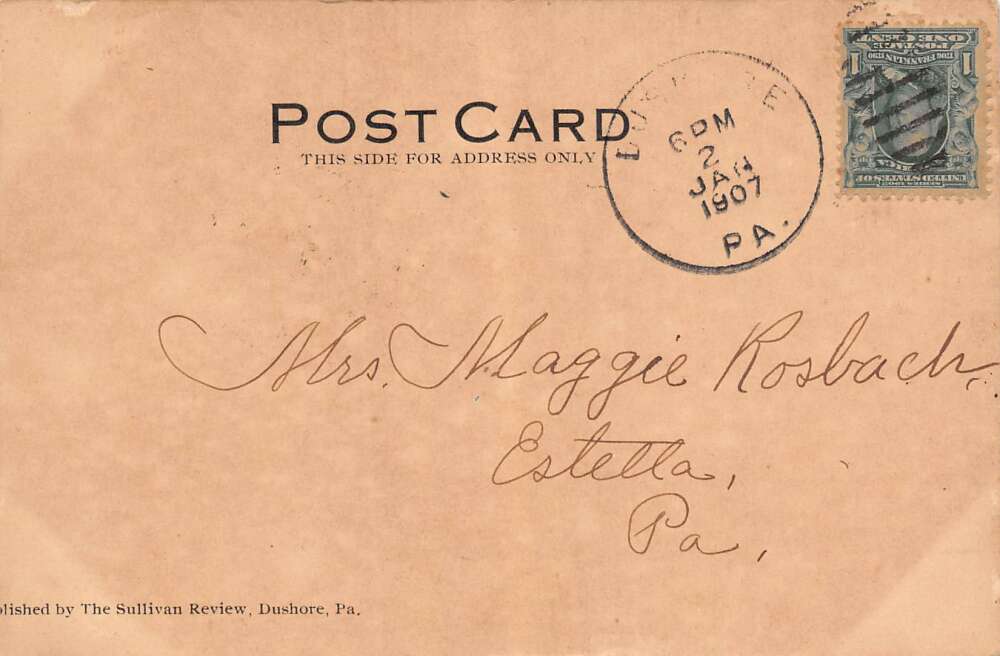 POST CARD
THIS SIDE FOR ADDRESS ONLY
DUSHORE
6 PM
2
JAN
1907
PA.
ONE CENT
POSTAGE
1706 FRANKLIN 1790
1 1
UNITED STATES OF
Mrs. Maggie Rosbach,
Estella,
Pa,
lished by The Sullivan Review, Dushore, Pa.